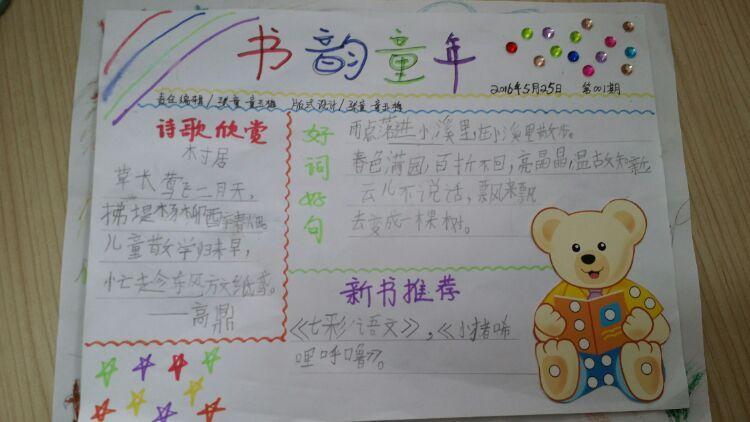 书韵童年
2016年5月25日 第001期
责任编辑/张童 童玉梅 版式设计/张童 童玉梅
诗歌欣赏
村居
草长莺飞二月天,
拂堤杨柳醉春烟。
儿童散学归来早,
忙趁东风放纸鸢。
——高鼎
好词好句
雨点落进小溪里,在小溪里散步。
春色满园,百折不回,亮晶晶,温故知新
云儿不说话,飘来飘
去变成一棵树。
新书推荐
《七彩语文》,《小猪唏
哩呼噜》。